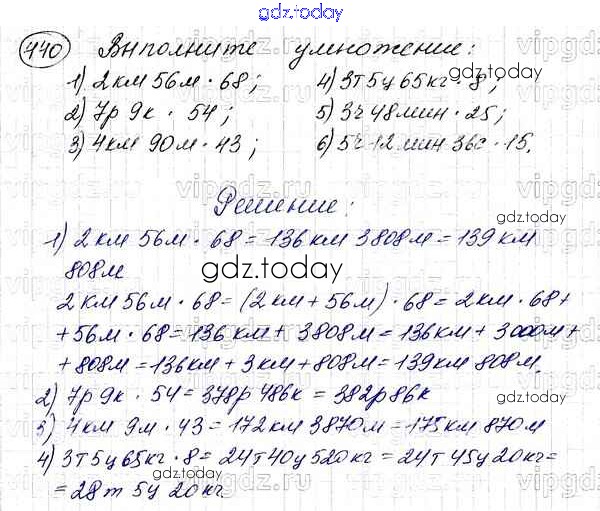 gdz.today
440 Выполните умножение:
1) 2 км 56 м · 68; 4) 3 т 5 ц 65 кг · 8;
gdz.today
2) 7р 9к · 54; 5) 3ч 48 мин · 25;
3) 4 км 90 м · 43; 6) 5ч 12 мин 36с · 15.
Решение:
gdz.today
1) 2 км 56 м · 68 = 136 км 3808 м = 139 км
808 м
gdz.today
2 км 56 м · 68 = (2 км + 56 м) · 68 = 2 км · 68 +
+ 56 м · 68 = 136 км + 3808 м = 136 км + 3000 м +
+ 808 м = 136 км + 3 км + 808 м = 139 км 808 м.
2) 7р 9к · 54 = 378р 486к = 382р 86к
3) 4 км 9 м · 43 = 172 км 3870 м = 175 км 870 м
4) 3 т 5 ц 65 кг · 8 = 24 т 40 ц 520 кг = 24 т 45 ц 20 кг =
= 28 т 5 ц 20 кг
gdz.today
vipgdz.ru